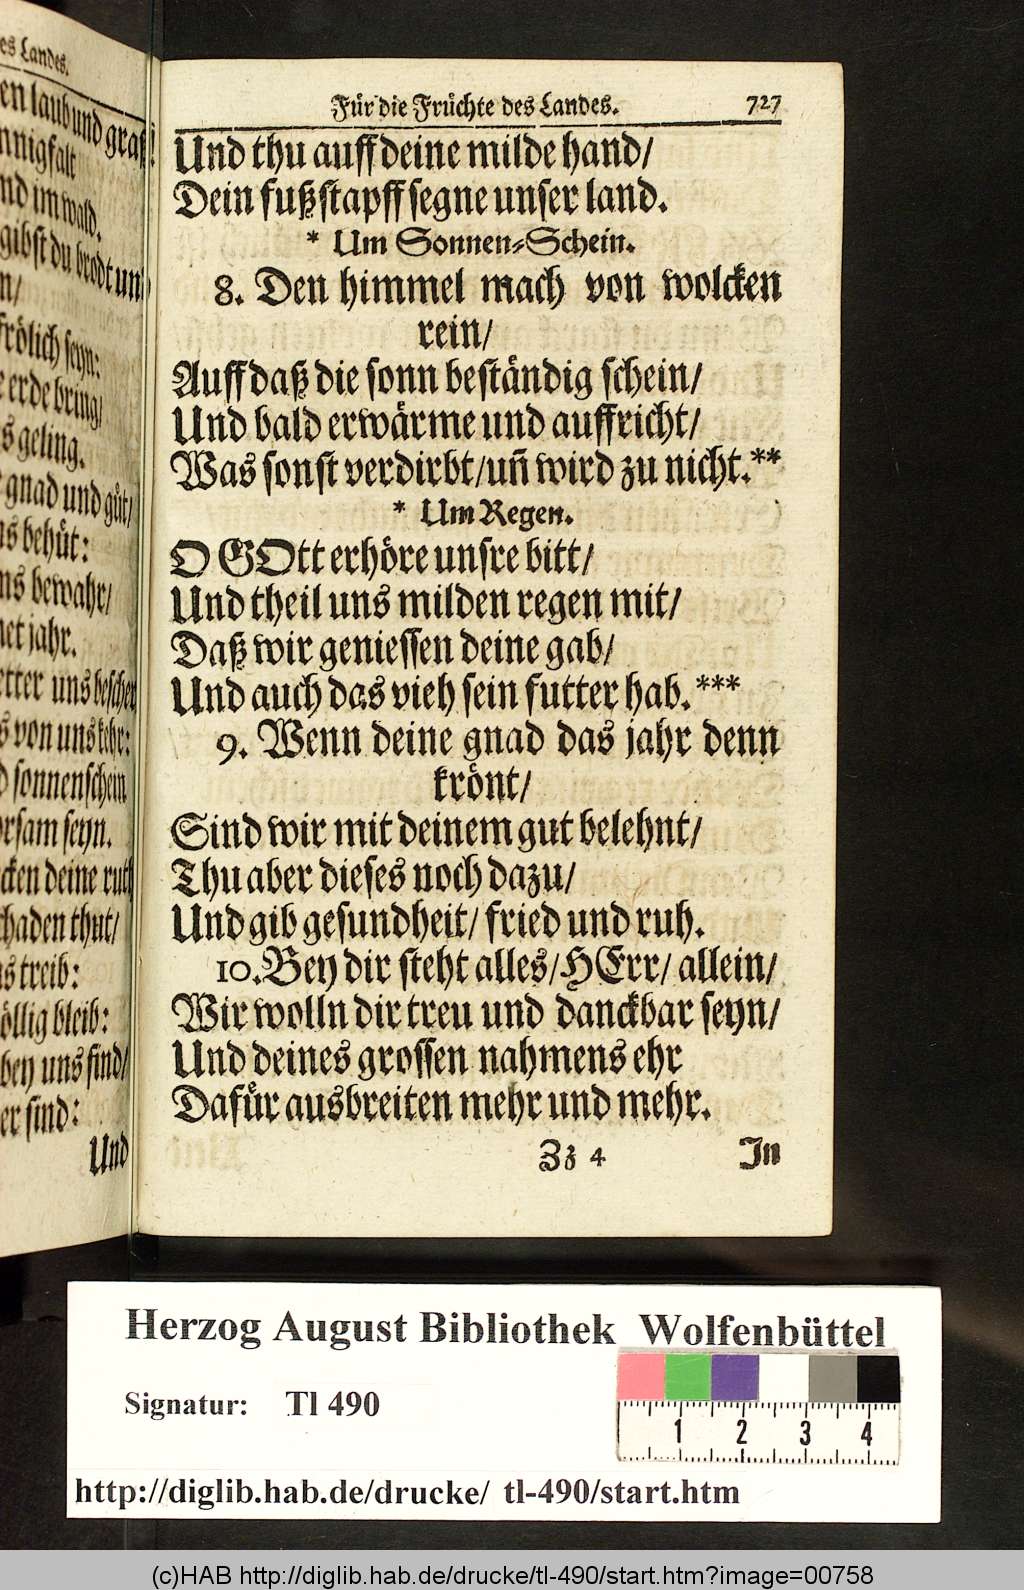 es Landes.
en laub und graß/
nnigfalt
nd im wald.
gibst du brodt un
n/
frölich seyn:
e erde bring/
s geling.
gnad und güt/
ns behüt:
ns bewahr/
net jahr.
etter uns bescher
s von uns kehr:
d sonnenschein
orsam seyn.
cken deine ruth
chaden thut/
ns treib:
öllig bleib:
bey uns find/
er sind:
Und
Für die Früchte des Landes. 727
Und thu auff deine milde hand/
Dein fußstapff segne unser land.
* Um Sonnen-Schein.
8. Den himmel mach von wolcken
rein/
Auff daß die sonn beständig schein/
Und bald erwärme und auffricht/
Was sonst verdirbt/un̄ wird zu nicht.**
* Um Regen.
O GOtt erhöre unsre bitt/
Und theil uns milden regen mit/
Daß wir geniessen deine gab/
Und auch das vieh sein futter hab.***
9. Wenn deine gnad das jahr denn
krönt/
Sind wir mit deinem gut belehnt/
Thu aber dieses noch dazu/
Und gib gesundheit/ fried und ruh.
10. Bey dir steht alles/ HErr/ allein/
Wir wolln dir treu und danckbar seyn/
Und deines grossen nahmens ehr
Dafür ausbreiten mehr und mehr.
Zz 4 In
Herzog August Bibliothek Wolfenbüttel
Signatur: Tl 490
1 2 3 4
http://diglib.hab.de/drucke/ tl-490/start.htm
(c)HAB http://diglib.hab.de/drucke/tl-490/start.htm?image=00758